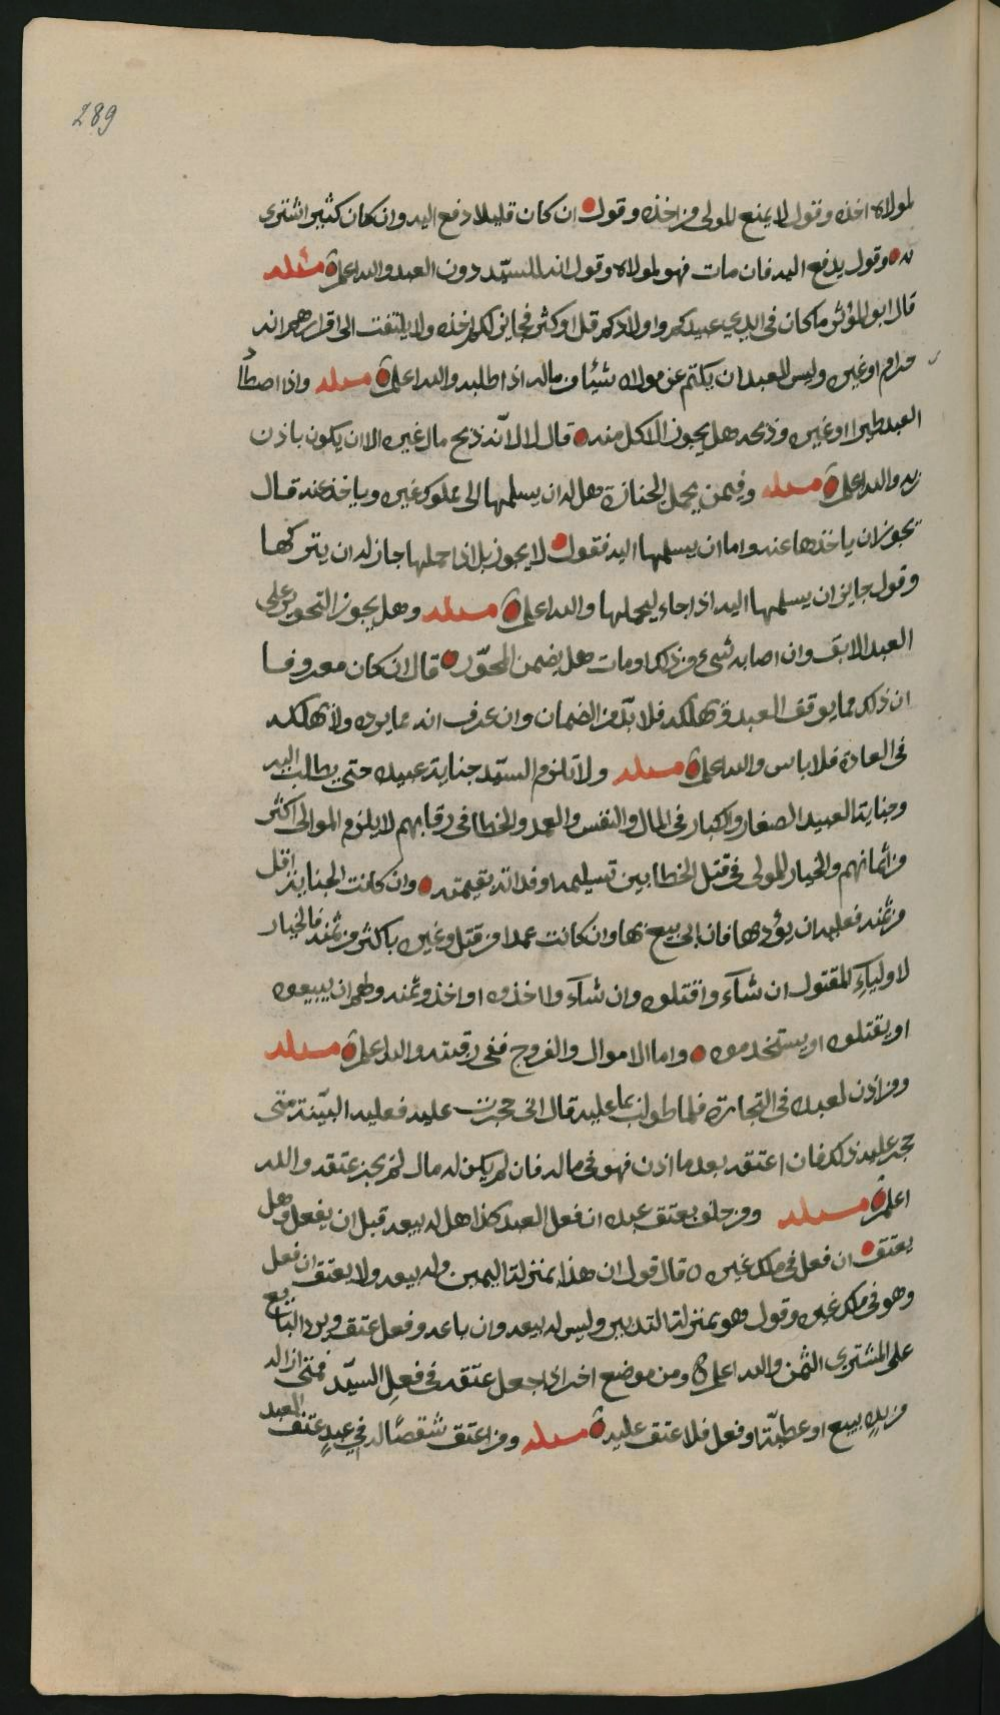 289
لمولاه اخذه وقول لا يمنع المولى من اخذه وقول ان كان قليلا دفع اليه وان كان كثيرا اشترى
به وقول يدفع اليه فان مات فهو لمولاه وقول انه للسيّد دون العبد والله اعلم مسئله
قال ابو المؤثر ما كان في ايدي عبيدكم واولادكم قل او كثر فجايز لكم اخذه ولا يلتفت الى اقرارهم انه
حرام او غيره وليس للعبد ان يكتم عن مولاه شيئا من ماله اذا طلبه والله اعلم مسئله واذا اصطاد
العبد طيرا او غيره وذبحه هل يجوز الاكل منه قال لا لانّه ذبح مال غيره الا ان يكون باذن
ربه والله اعلم مسئله وفيمن يحمل الجنازة وهل له ان يسلمها الى مملوك غيره وياخذ عنه قال
يجوز ان ياخذها عنه واما ان يسلمها اليه فقول لا يجوز بل اذا حملها جاز له ان يتركها
وقول جايز ان يسلمها اليه اذا جاء ليحملها والله اعلم مسئله وهل يجوز التحوير على
العبد الابق وان اصابه شيء من ذلك او مات هل يضمن المحوّر قال ان كان معروفا
ان ذلك مما يوقف العبد و يهلكه فلا بدّ من الضمان وان عرف انه مما يرده ولا يهلكه
في العادة فلا باس والله اعلم مسئله ولا تلزم السيّد جناية عبيده حتى يطالب اليه
وجناية العبيد الصغار والكبار في المال والنفس والعمد والخطا في رقابهم لا يلزم الموالى اكثر
من اثمانهم والخيار للمولى في قتل الخطا بين تسليمه او فدائه بقيمته وان كانت الجناية اقل
من ثمنه فعليه ان يؤديها فان ابى بيع بها وان كانت عمدا من قتل وغيره باكثر من ثمنه فالخيار
لاولياءِ المقتول ان شآءوا قتلوه وان شآءوا اخذوه او اخذوا ثمنه ولهم ان يبيعوه
او يقتلوه او يستخدموه واما الاموال والفروج ففي رقبته والله اعلم مسئله
ومن اذن لعبده في التجارة فلما طولب بما عليه قال اني حجرت عليه فعليه البيّنة متى
حجر عليه ذلك فان اعتقه بعد ما اذن فهو في ماله فان لم يكن له مال لم يجز عتقه والله
اعلم مسئله ومن حلف بعتق عبده ان فعل العبد كذا هل له بيعه قبل ان يفعل وهل
يعتق ان فعل في ملك غيره قال قول ان هذا بمنزلة اليمين وله بيعه ولا يعتق ان فعل
وهو في ملك غيره وقول وهو بمنزلة التدبير وليس له بيعه وان باعه وفعل عتق ويرد البايع
على المشتري الثمن والله اعلم ومن موضع اخر اذا جعل عتقه في فعل السيّد فمتى ازاله
من يده ببيع او عطيّة او فعل فلا عتق عليه مسئله ومن اعتق شقصًا له في عبدٍ عتق العبد